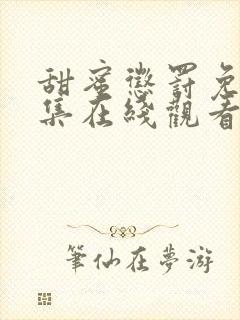 甜蜜懲罰免
集在綫觀看
筆仙在夢游